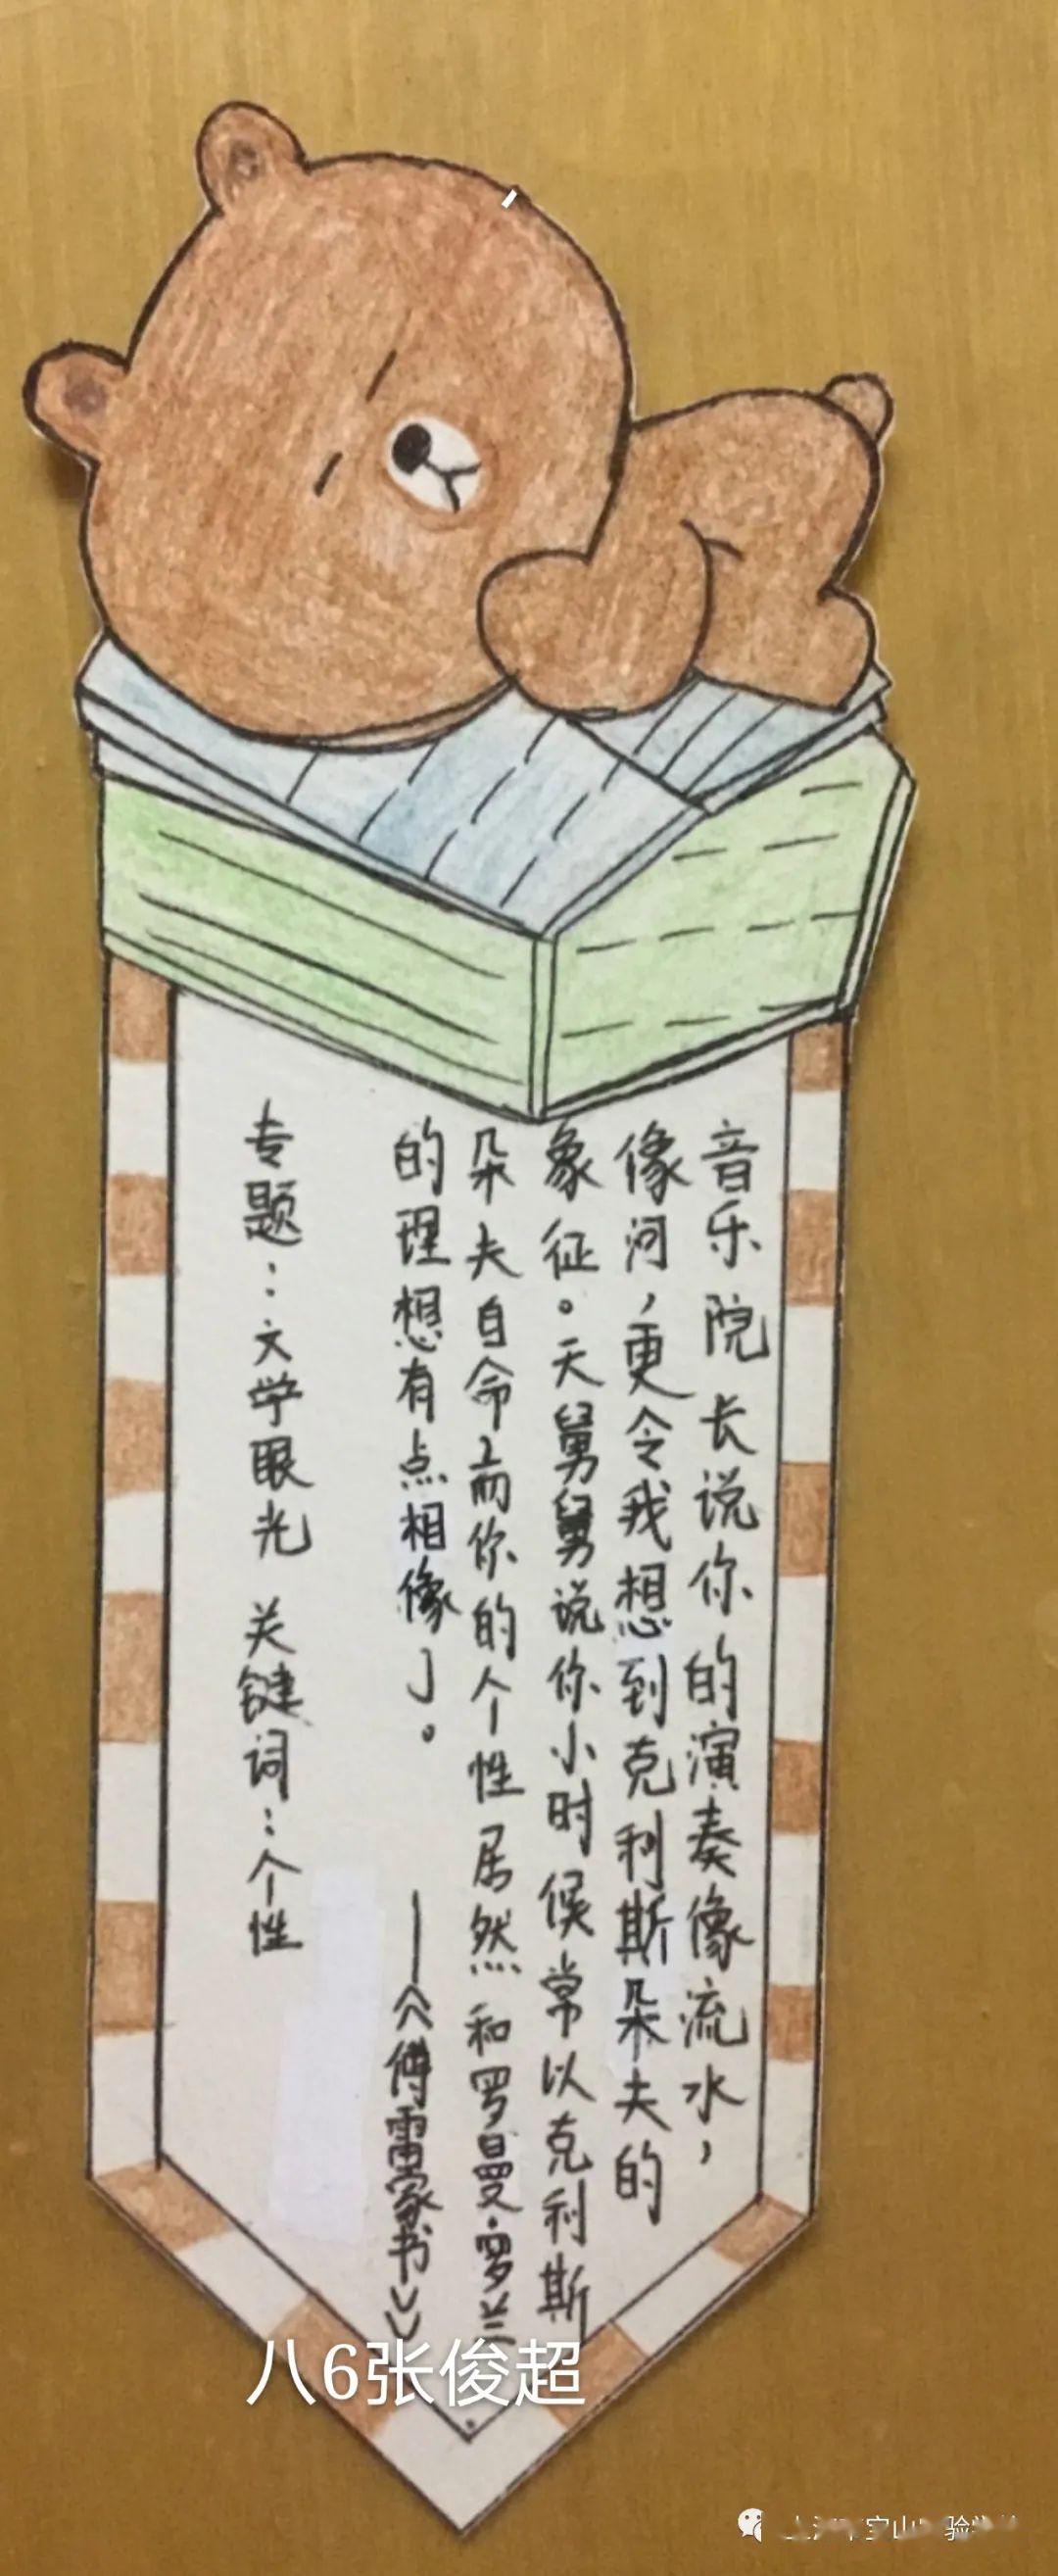 音乐院长说你的演奏像流水，
像河，更令我想到克利斯朵夫的
象征。天舅舅说你小时候常以克利斯
朵夫自命而你的个性居然和罗曼·罗兰
的理想有点相像了。 ——《傅雷家书》
专题：文学眼光 关键词：个性
八6张俊超